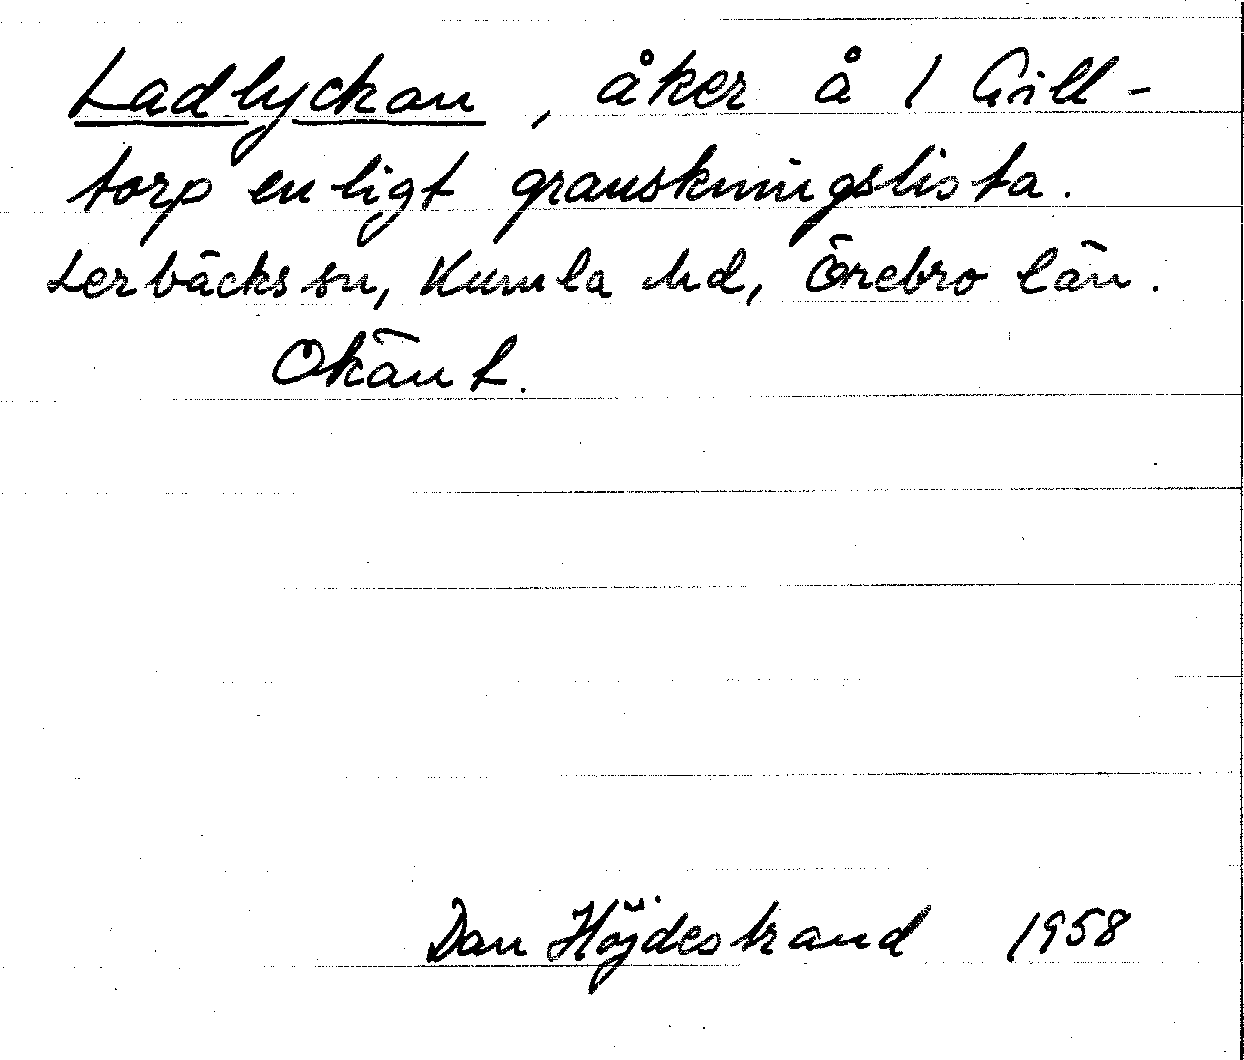 Ladlyckan, åker å 1 Gill-
torp enligt granskningslista.
Lerbäcks sn, Kumla hd, Örebro län.
Okänt.
Dan Höjdestrand 1958